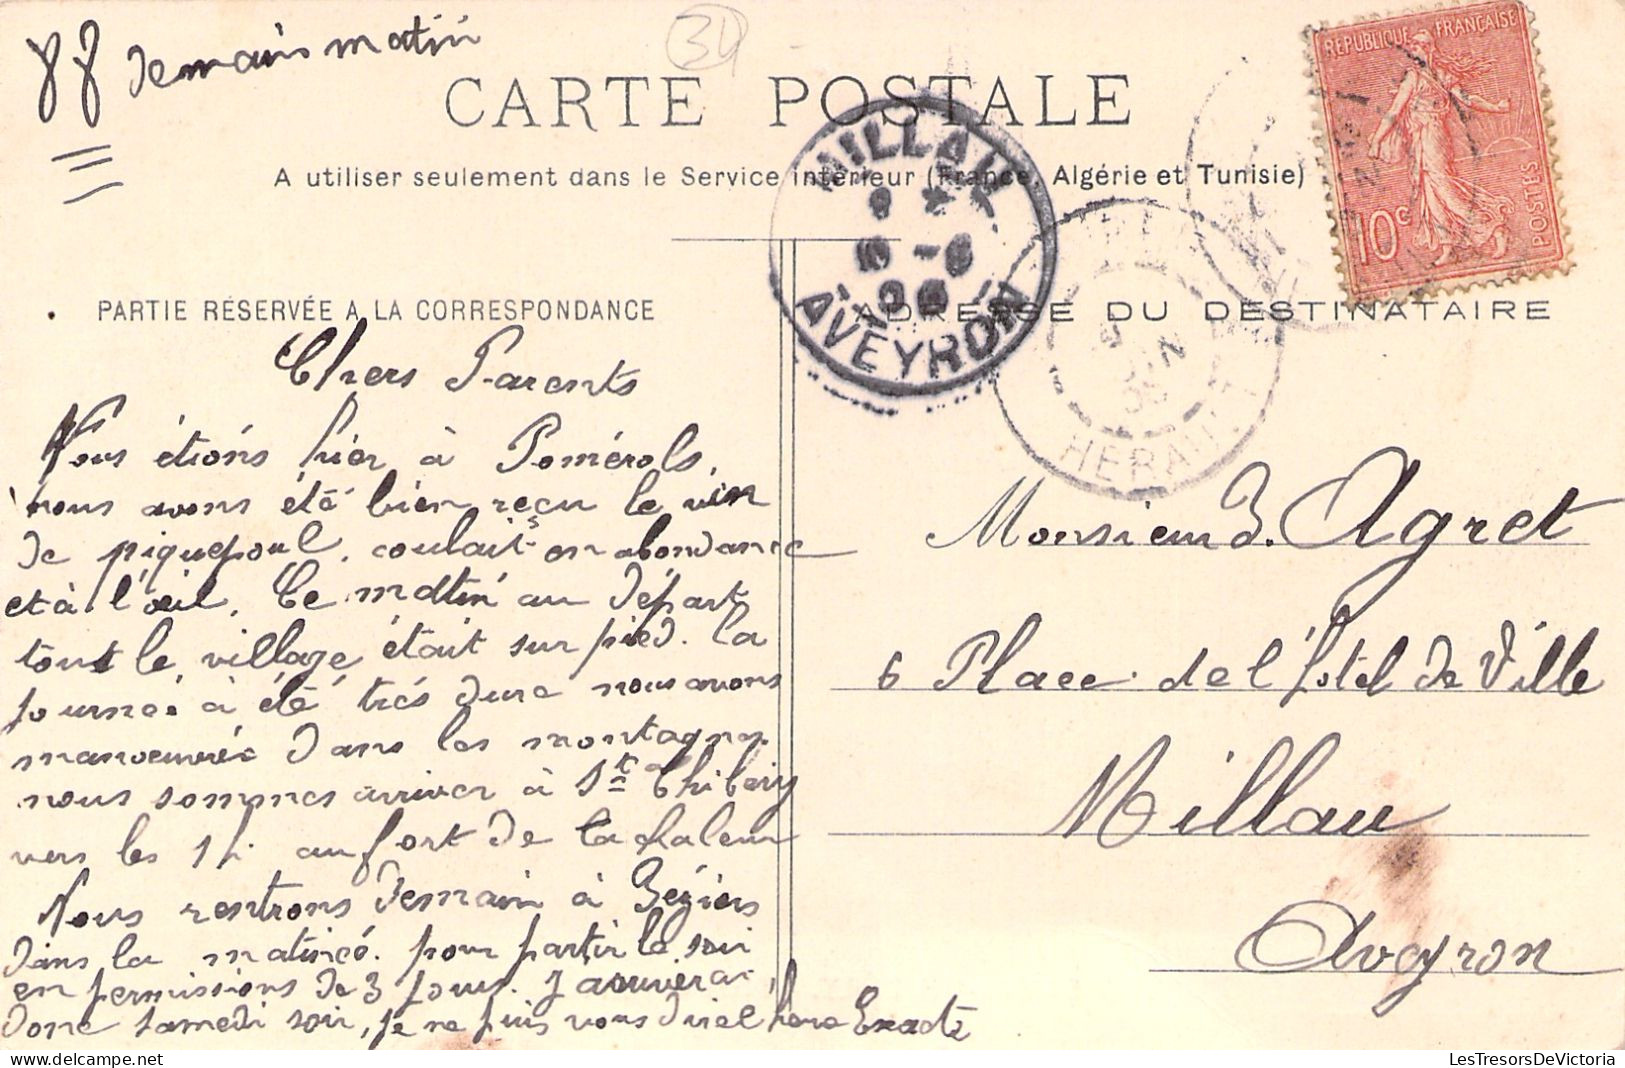 88 demain matin
34
CARTE POSTALE
A utiliser seulement dans le Service intérieur (France, Algérie et Tunisie)
REPUBLIQUE FRANÇAISE
10c
POSTES
MILLAU
AVEYRON
HERAULT
PARTIE RÉSERVÉE A LA CORRESPONDANCE
ADRESSE DU DESTINATAIRE
Chers Parents
Nous étions hier à Pomérols,
nous avons été bien reçu le vin
de piquepoul, coulait en abondance
et à l'œil. Ce matin au départ
tout le village était sur pied. La
journée à été très dure nous avons
manoeuvrée dans les montagnes
nous sommes arriver à St Thibéry
vers les 1 h au fort de la chaleur
Nous rentrons demain à Béziers
dans la matinée. pour partir le soir
en permissions de 3 jours. J'arriverai
donc samedi soir, je ne puis vous dire l'heure Exacte
Monsieur J. Agret
6 Place de l'Hotel de Ville
Millau
Aveyron
LesTresorsDeVictoria